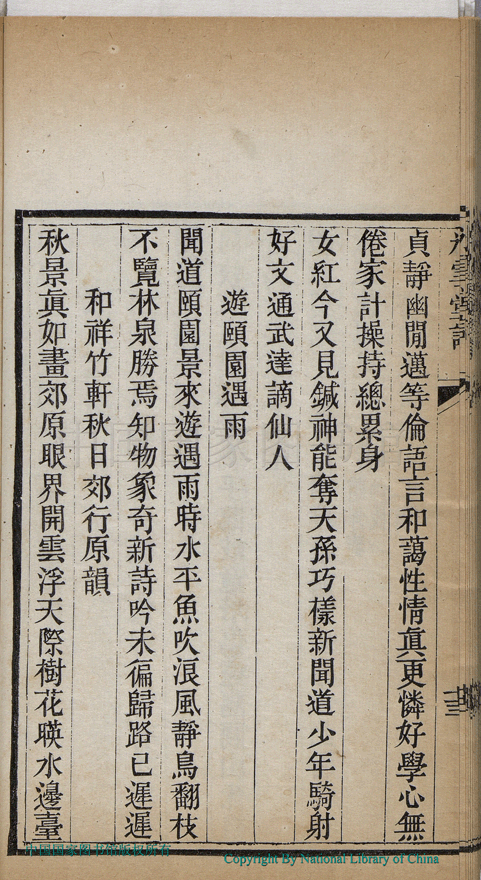 貞靜幽閒邁等倫語言和藹性情眞更憐好學心無
倦家計操持總累身
女紅今又見鍼神能奪天孫巧樣新聞道少年騎射
好文通武達謫仙人
遊頤園遇雨
聞道頤園景來遊遇雨時水平魚吹浪風靜鳥翻枝
不覽林泉勝焉知物象奇新詩吟未徧歸路已遲遲
和祥竹軒秋日郊行原韻
秋景眞如畫郊原眼界開雲浮天際樹花暎水邊臺
中国国家图书馆版权所有
Copyright By National Library of China